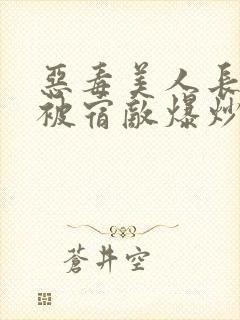 惡毒美人長
被宿敵爆炒
蒼井空